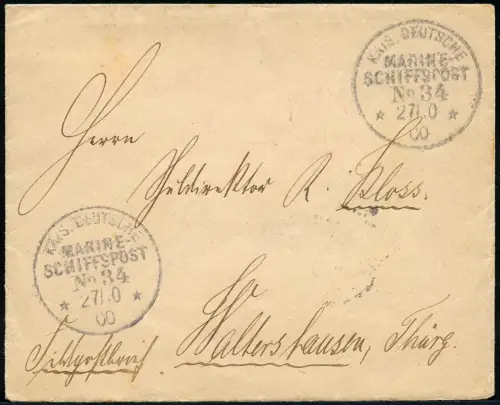 KAIS. DEUTSCHE
MARINE-
SCHIFFSPOST
No 34
* 27/10 *
00
Herrn
Schuldirektor R. Kloss.
KAIS. DEUTSCHE
MARINE-
SCHIFFSPOST
No 34
* 27/10 *
00
Feldpostbrief. Waltershausen, Thürg.